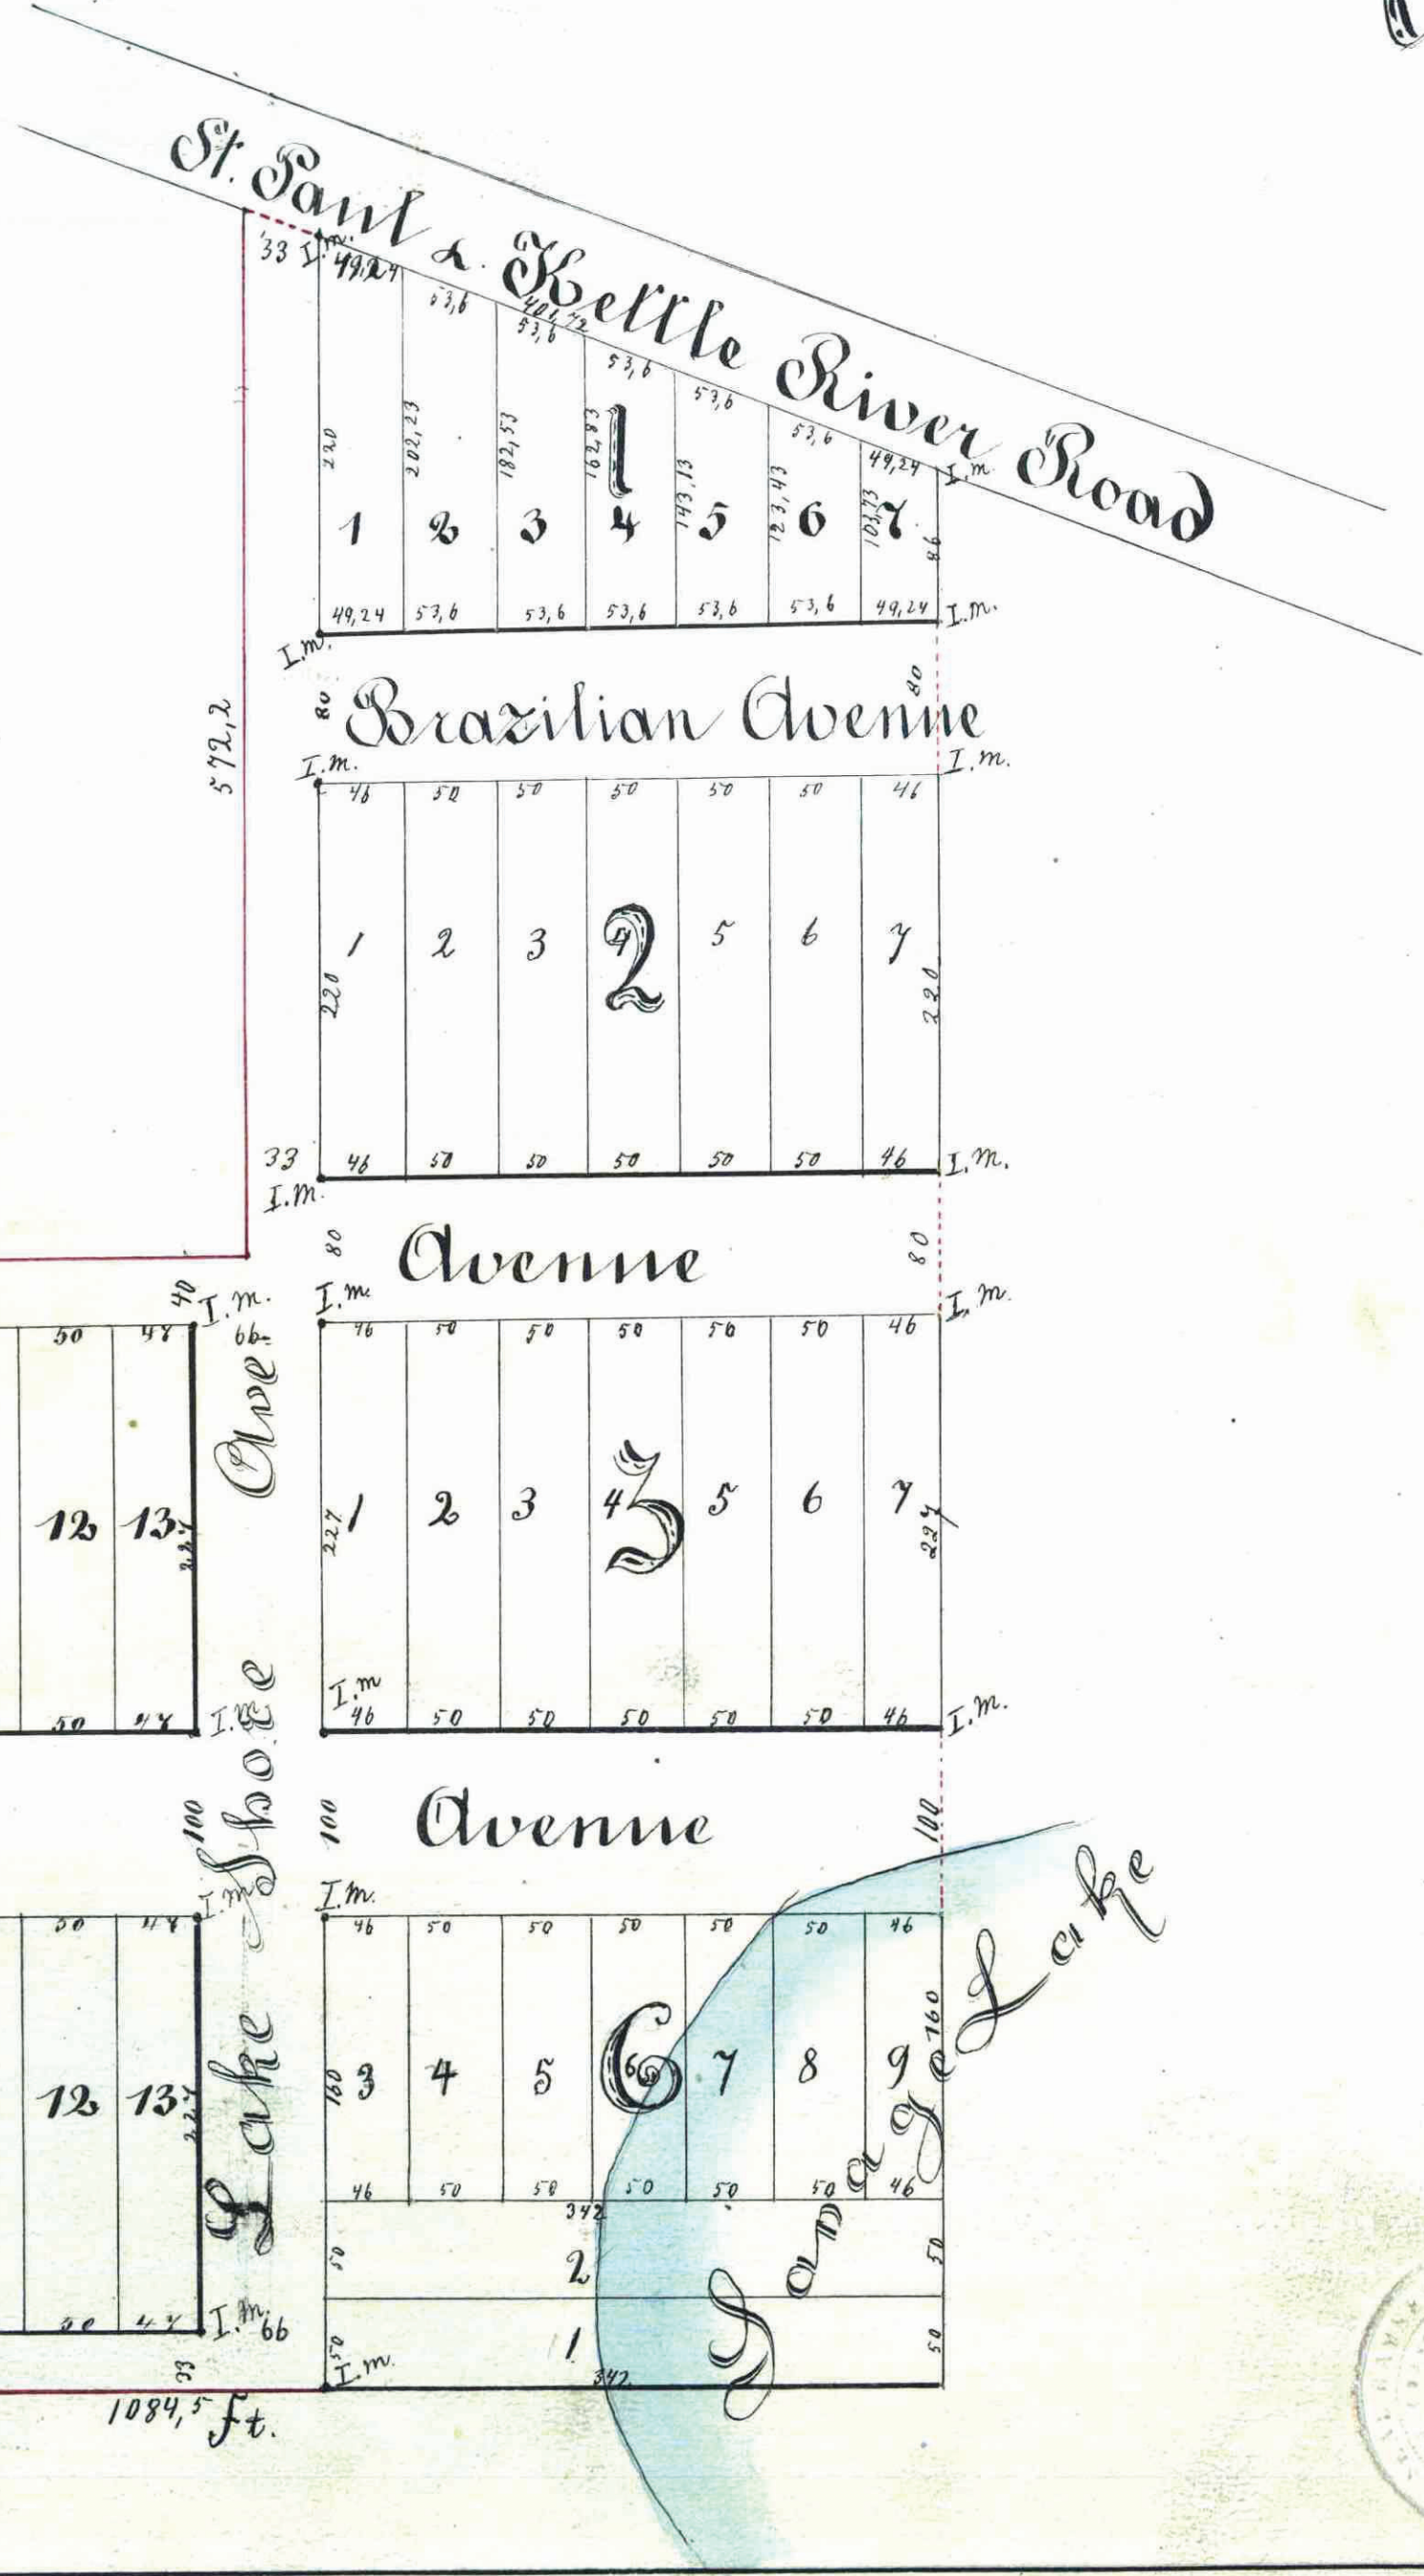 St. Paul & Kettle River Road
33 I.m.
49,24
53,6
401,72
53,6
53,6
53,6
53,6
49,24 I.m.
220
202,23
182,53
162,83
143,13
123,43
103,73
86
1
1 2 3 4 5 6 7
49,24 53,6 53,6 53,6 53,6 53,6 49,24 I.m.
I.m.
572,2
80 Brazilian Avenue 80
I.m. I.m.
46 50 50 50 50 50 46
1 2 3 4 5 6 7
2
220 220
33 46 50 50 50 50 50 46 I.M.
I.M.
80 Avenue 80
40 I.m. I.m. I.m.
50 47 66 46 50 50 50 50 50 46
12 13 1 2 3 4 5 6 7
3
227 227 227
I.m
50 47 I.m. 46 50 50 50 50 50 46 I.m.
Lake Shore Ave
100 100 Avenue 100
I.m. I.m.
50 47 46 50 50 50 50 50 46
12 13 3 4 5 6 7 8 9
6
227 160 160
46 50 50 50 50 50 46
342
50 2 50
50 1 50
50 47 I.m. 66
33 I.m. 342
1084,5 ft.
Savage Lake